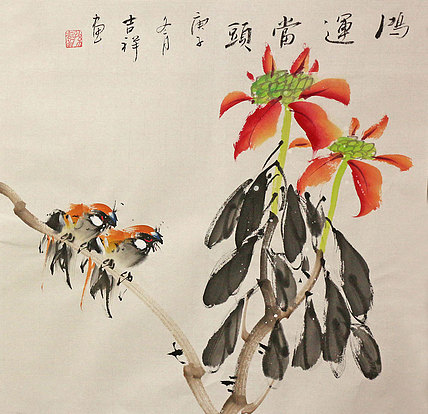 鴻運當頭
庚子
冬月
吉祥
画